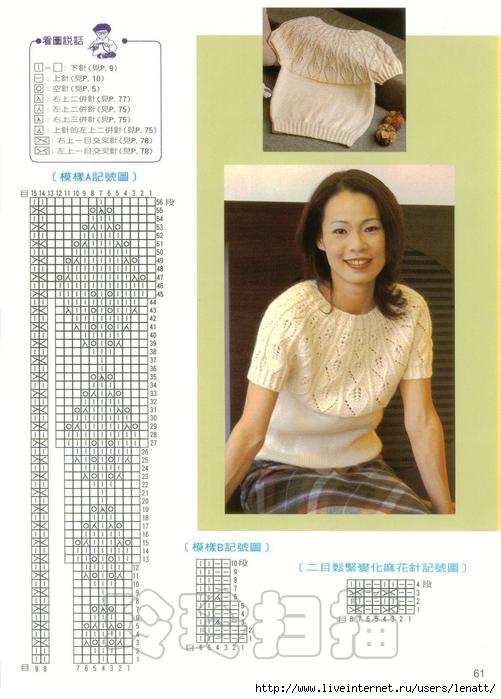 看圖説話
|=□:下針(見P. 9)
—:上針(見P. 10)
○:空針(見P. 5)
⋋:右上二併針(見P. 77)
⋌:左上二併針(見P. 75)
:右上三併針(見P. 75)
:上針的左上二併針(見P. 75)
:右上一目交叉針(見P. 78)
:左上一目交叉針(見P. 78)
〔模樣A記號圖〕
目 15 14 13 12 11 10 9 8 7 6 5 4 3 2 1
56 段
55
54
53
52
51
50
49
48
47
46
45
44
43
42
41
40
39
38
37
36
35
34
33
32
31
30
29
28
27
26
25
24
23
22
21
20
19
18
17
16
15
14
13
12
11
10
9
8
7
6
5
4
3
2
1
目 9 8 7 6 5 4 3 2 1
〔模樣B記號圖〕
10 段
9
8
7
6
5
4
3
2
1
〔二目鬆緊變化麻花針記號圖〕
4 段
3
2
1
目 8 7 6 5 4 3 2 1
玲玲扫描
61
http://www.liveinternet.ru/users/lenatt/